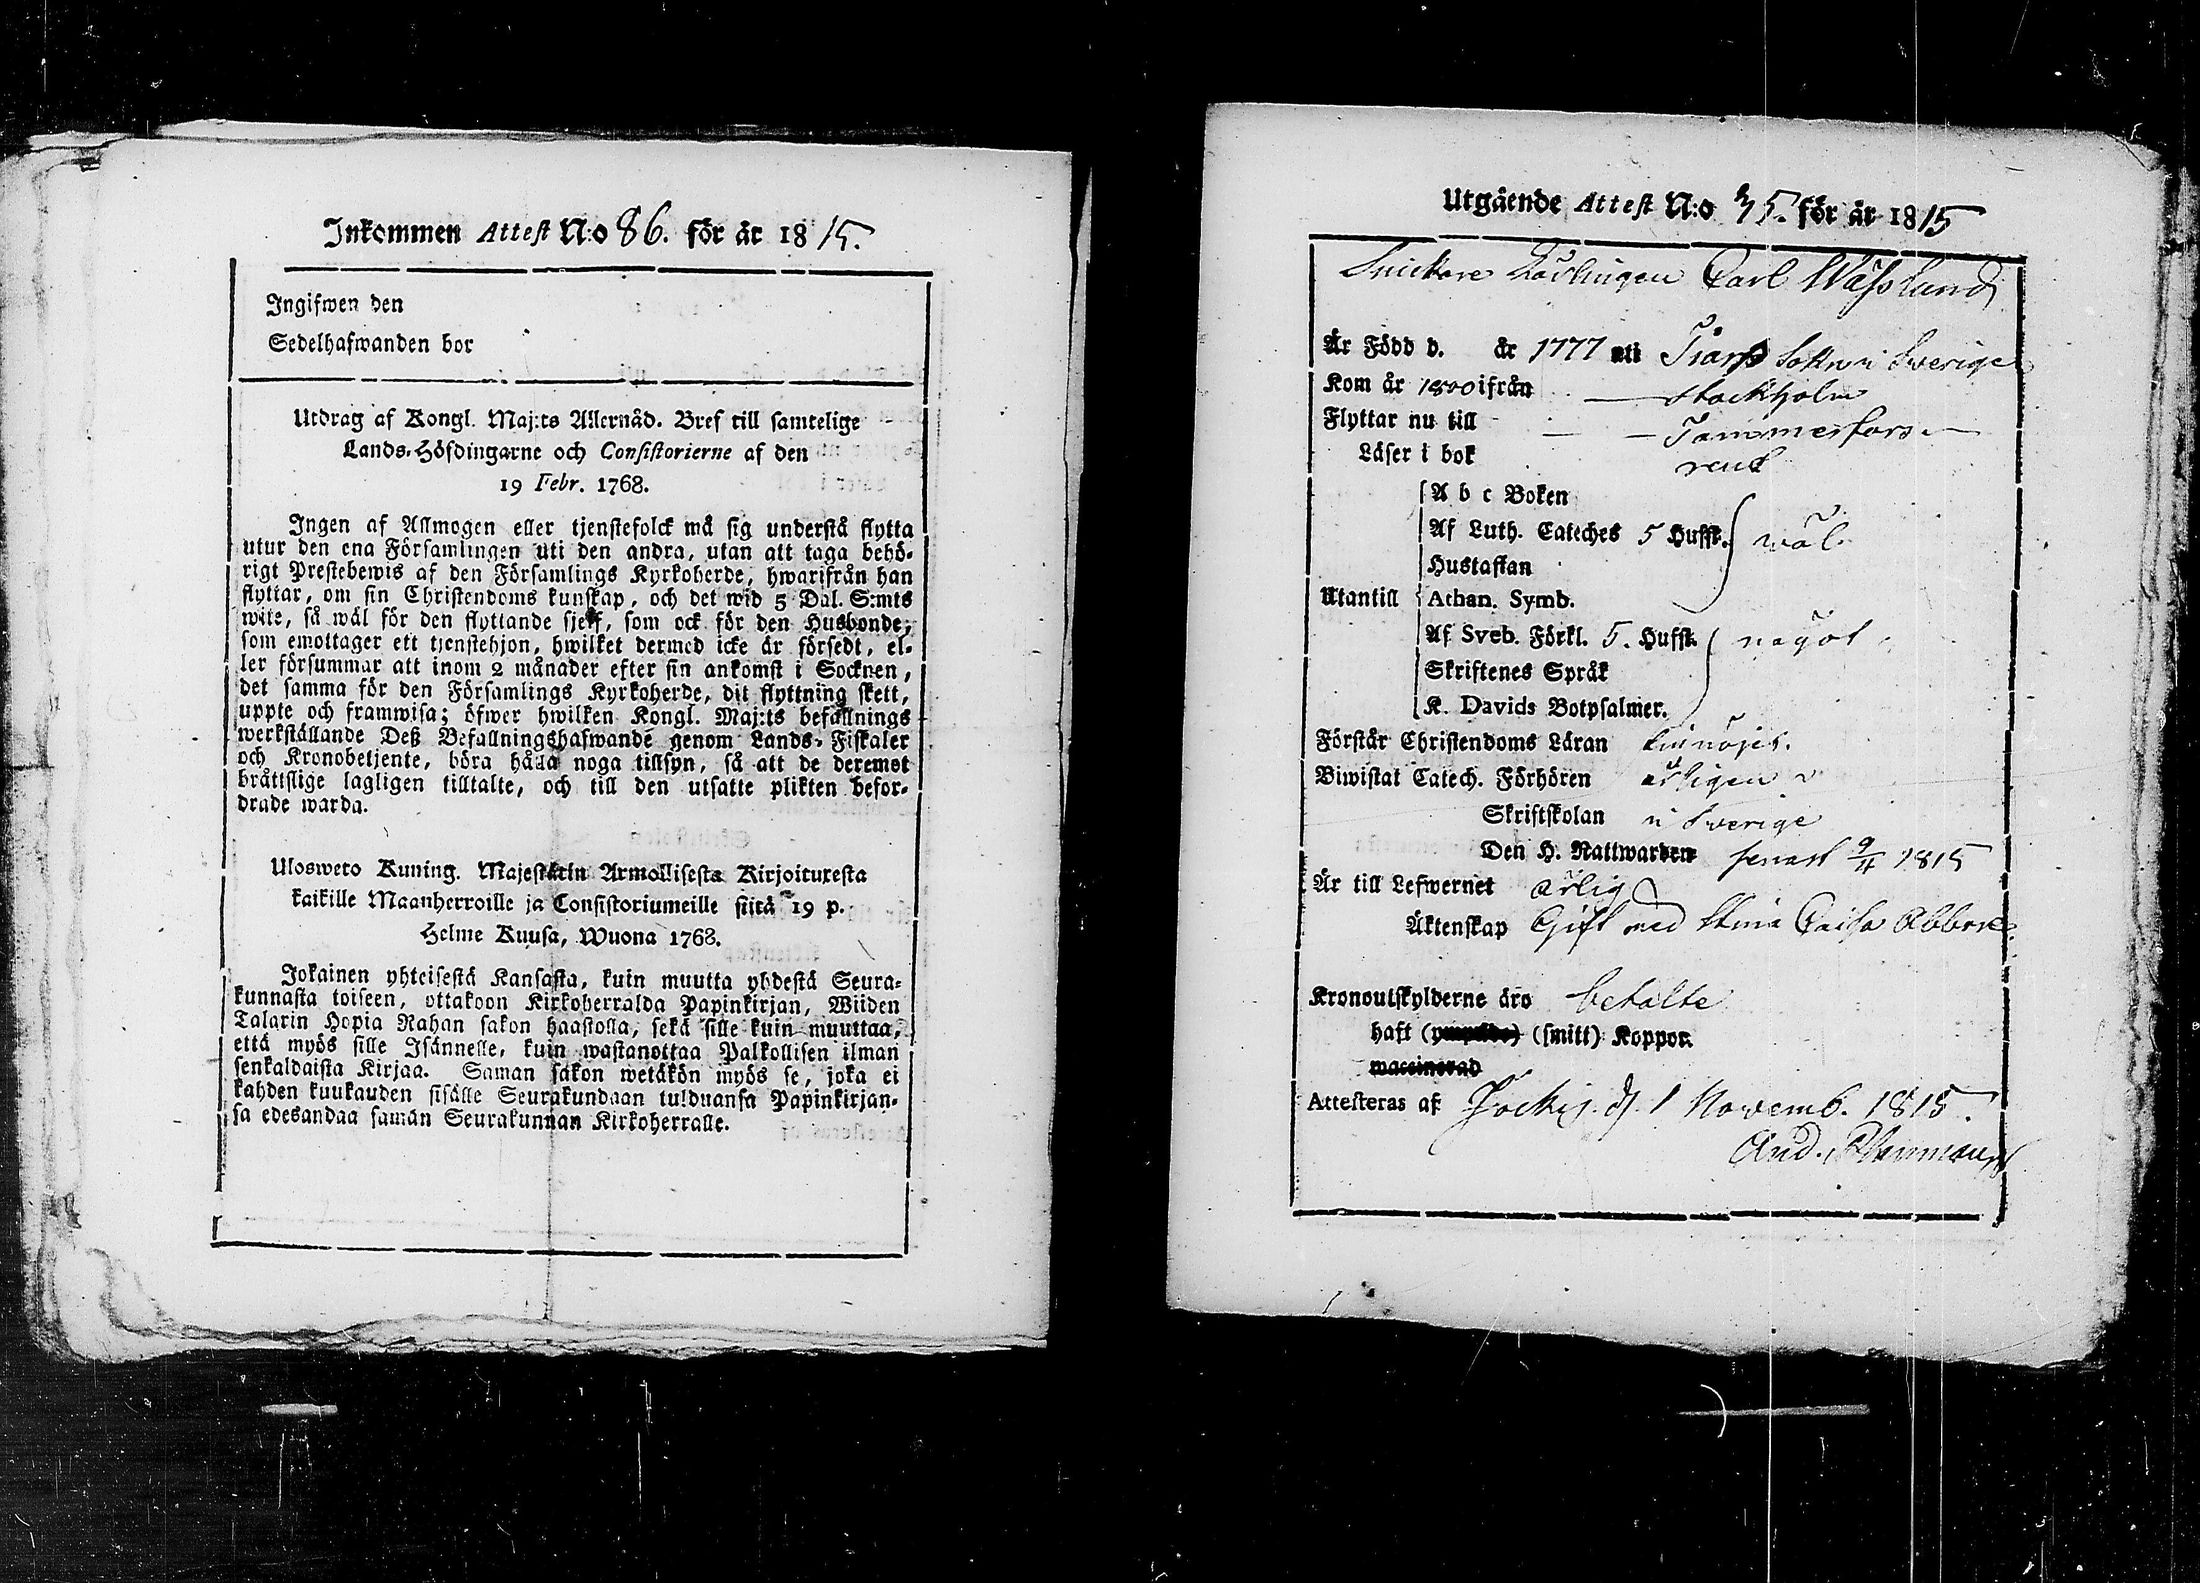 Inkommen Attest N:o 86. för år 1815.
Ingifwen den
Sedelhafwanden bor
Utdrag af Kongl. Maj:ts Allernåd. Bref till samtelige
Lands-Höfdingarne och Consistorierne af den
19 Febr. 1768.
Ingen af Allmogen eller tjenstefolck må sig understå flytta
utur den ena Församlingen uti den andra, utan att taga behö-
rigt Prestebewis af den Församlings Kyrkoherde, hwarifrån han
flyttar, om sin Christendoms kunskap, och det wid 5 Dal. S:mts
wite, så wäl för den flyttande sjelf, som ock för den Husbonde,
som emottager ett tjenstehjon, hwilket dermed icke är försedt, el-
ler försummar att inom 2 månader efter sin ankomst i Socknen,
det samma för den Församlings Kyrkoherde, dit flyttning skett,
uppte och framwisa; öfwer hwilken Kongl. Maj:ts befallnings
werkställande Deß Befallningshafwande genom Lands-Fiskaler
och Kronobetjente, böra hålla noga tillsyn, så att de deremot
bråttslige lagligen tilltalte, och till den utsatte plikten befor-
drade warda.
Ulosweto Kuning. Majestetin Armollisesta Kirjoituxesta
kaikille Maanherroille ja Consistoriumeille siitä 19 p.
Helme Kuusa, Wuona 1768.
Jokainen yhteisestä Kansasta, kuin muutta yhdestä Seura-
kunnasta toiseen, ottakoon Kirkoherralda Papinkirjan, Wiiden
Talarin Hopia Rahan sakon haastolla, sekä sille kuin muuttaa,
että myös sille Isännelle, kuin wastanottaa Palkollisen ilman
senkaldaista Kirjaa. Saman sakon wetäkön myös se, joka ei
kahden kuukauden sisälle Seurakundaan tulduansa Papinkirjan-
sa edesandaa saman Seurakunnan Kirkoherralle.
Utgående Attest N:o 35. för år 1815
Snickare Lärlingen Carl Wässlund
Är Född d. år 1777 uti Sokn i Sverige
Kom år 1800 ifrån — Stockholm
Flyttar nu till — — Tammerfors —
Läser i bok rent
A b c Boken
Af Luth. Cateches 5 Hufst. wäl
Hustaflan
Utantill Athan. Symb.
Af Sveb. Förkl. 5. Hufst. något
Skriftenes Språk
K. Davids Botpsalmer.
Förstår Christendoms Läran
Biwistat Catech. Förhören årligen
Skriftskolan i Sverige
Den H. Nattwarden senast 9/4 1815
Är till Lefwernet ärlig
Äktenskap Gift med Stina Caisa Abbore
Kronoutskylderne äro betalte
haft (smitt) Koppor.
waccinerad
Attesteras af Jockis d. 1 Novemb. 1815.
And.